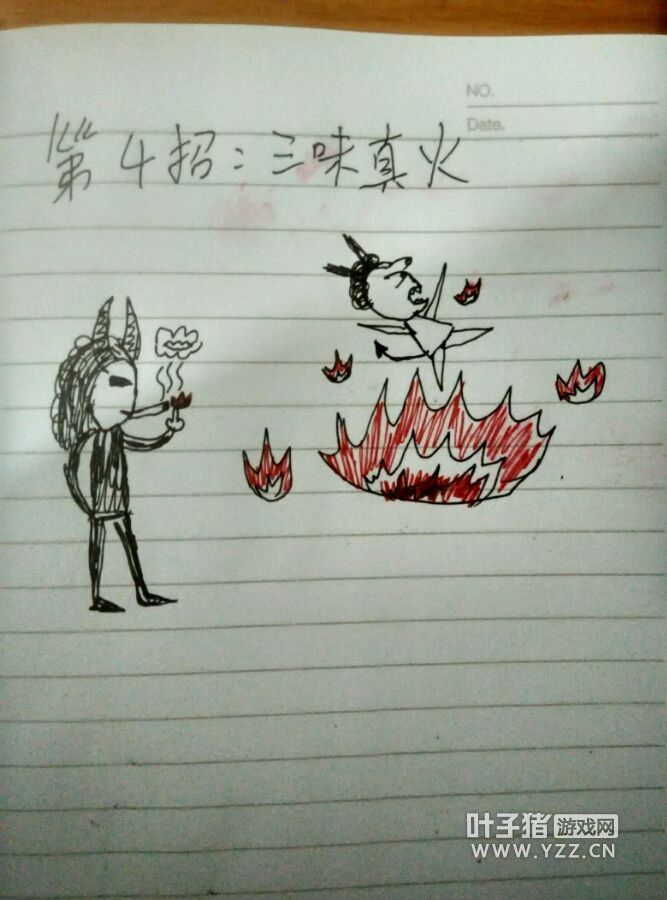 NO.
Date.
第4招:三味真火
叶子猪 游戏网
WWW.YZZ.CN